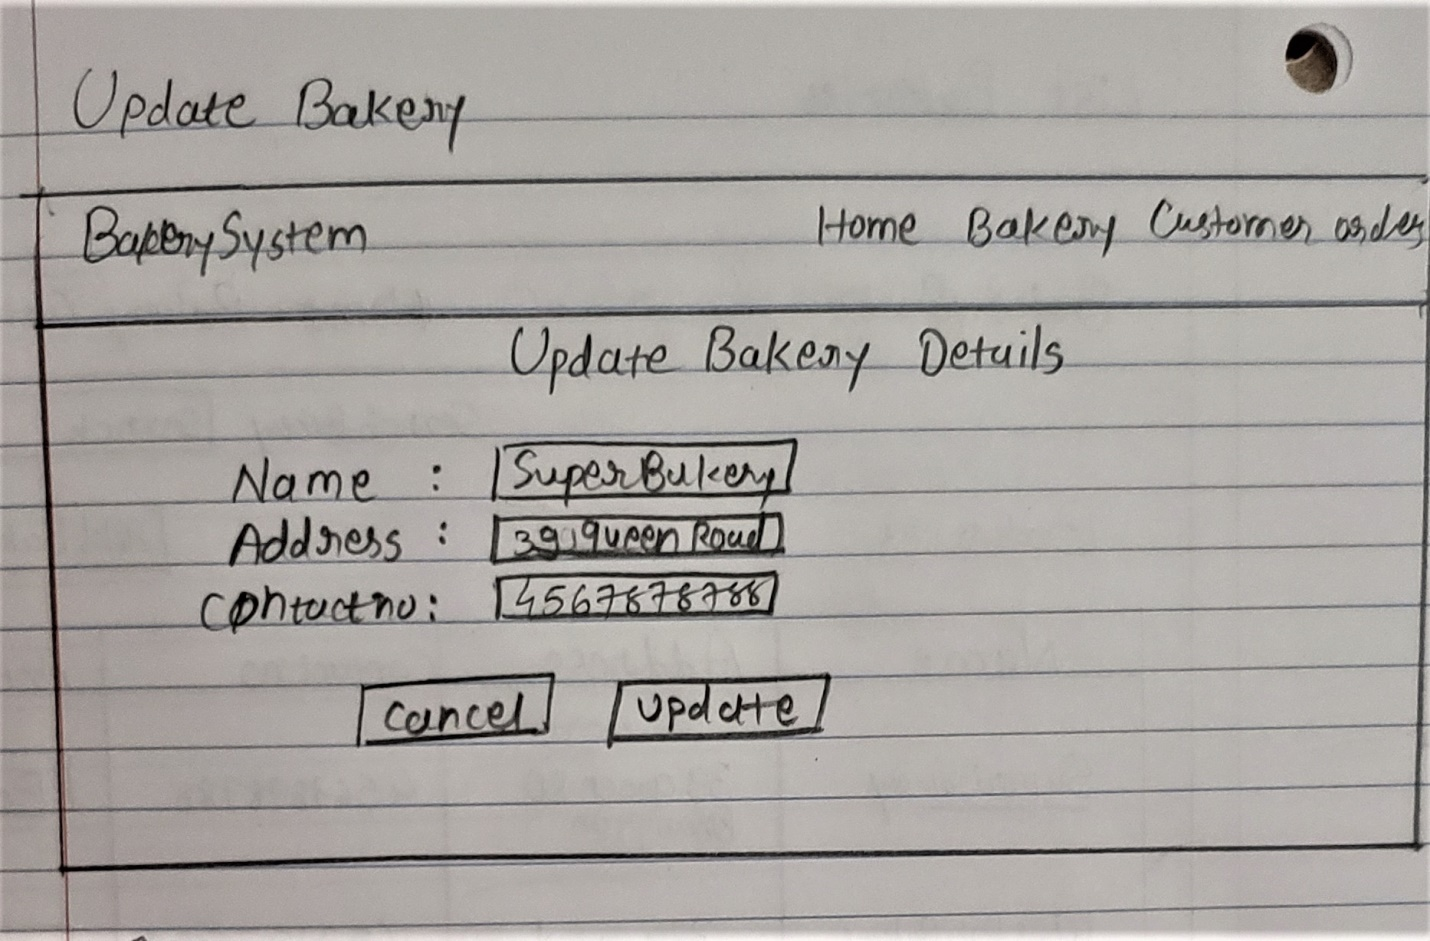 Update Bakery
BakerySystem Home Bakery Customer order
Update Bakery Details
Name : SuperBakery
Address : 39, queen Road
Contact no : 4567878788
Cancel Update